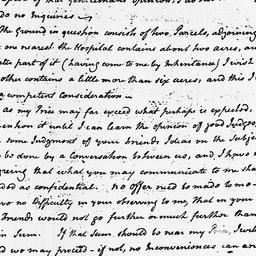 do no Inquiries
The ground in question consists of two Parcels, adjoining
one nearest the Hospital contains about two acres, an
ate part of it (having come to me by Inheritance) I wish
other contains a little more than six acres, and this I
a competent Consideration
as my Price may far exceed what perhaps is expected.
mention it until I can learn the opinion of good Judges
some Judgment of your Friends Ideas on the Subje
to be done by a Conversation between us, and I have n
greeing that what you may communicate to me sha
ded as confidential. no Offer need be made to me
no Difficulty in your observing to me, that in your
Friends would not go further or much further than
in Sum. If that Sum should be near my Price, I wil
d we may proceed - if not, no Inconveniences can ari